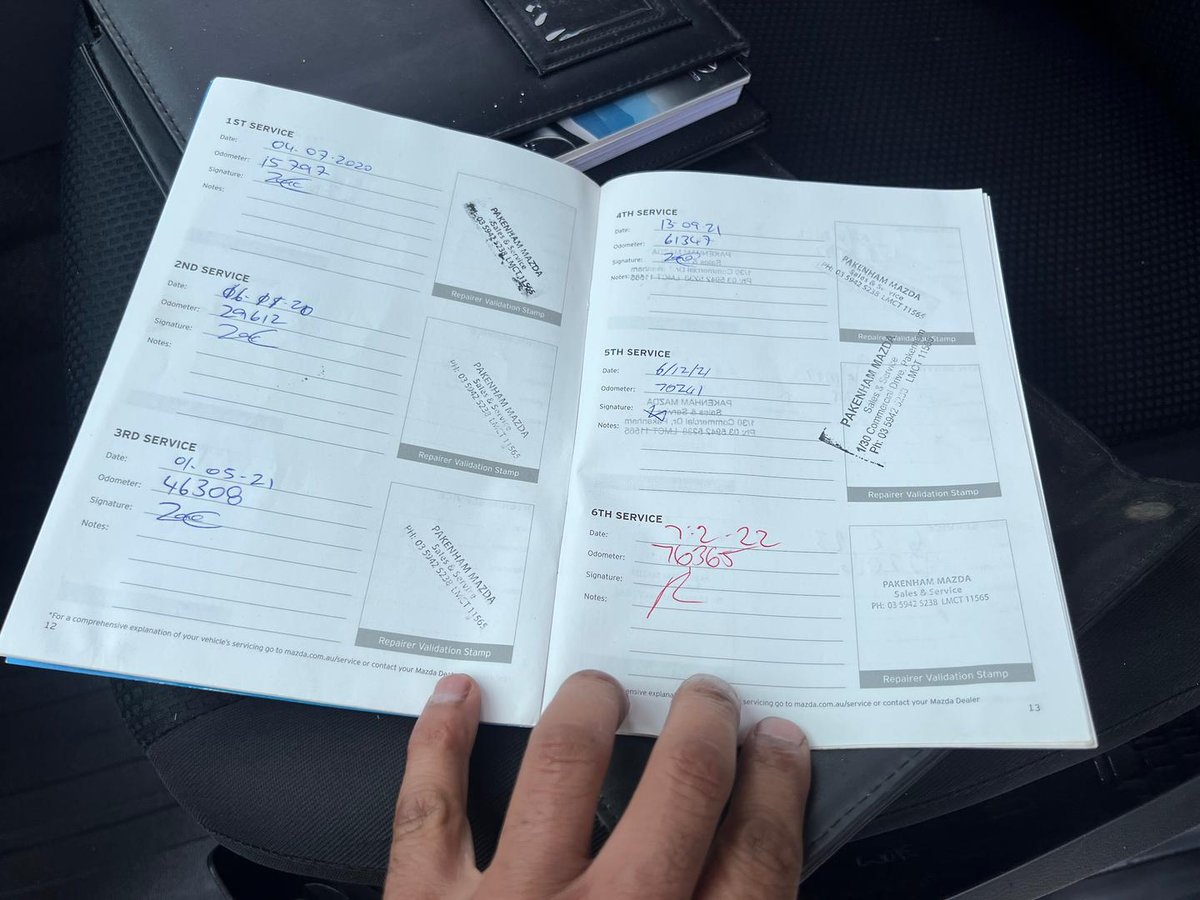 1ST SERVICE
Date: 04-07-2020
Odometer: 15797
Signature:
Notes:
PAKENHAM MAZDA
Sales & Service
PH: 03 5942 5238 LMCT 11565
Repairer Validation Stamp
2ND SERVICE
Date:
Odometer: 29612
Signature:
Notes:
PAKENHAM MAZDA
Sales & Service
PH: 03 5942 5238 LMCT 11565
Repairer Validation Stamp
3RD SERVICE
Date: 01-05-21
Odometer: 46308
Signature:
Notes:
PAKENHAM MAZDA
Sales & Service
PH: 03 5942 5238 LMCT 11565
Repairer Validation Stamp
*For a comprehensive explanation of your vehicle's servicing go to mazda.com.au/service or contact your Mazda Dealer
12
4TH SERVICE
Date: 13 09 21
Odometer: 61347
Signature:
Notes:
PAKENHAM MAZDA
Sales & Service
PH: 03 5942 5238 LMCT 11565
Repairer Validation Stamp
5TH SERVICE
Date: 6/12/21
Odometer: 70241
Signature:
Notes:
PAKENHAM MAZDA
Sales & Service
1/30 Commercial Drive, Pakenham
Ph: 03 5942 5238 LMCT 11565
Repairer Validation Stamp
6TH SERVICE
Date: 7-2-22
Odometer: 76365
Signature:
Notes:
PAKENHAM MAZDA
Sales & Service
PH: 03 5942 5238 LMCT 11565
Repairer Validation Stamp
servicing go to mazda.com.au/service or contact your Mazda Dealer
13